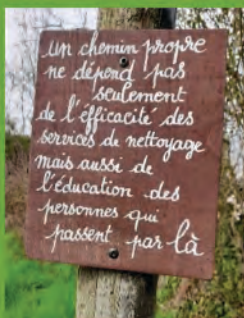 un chemin propre
ne dépend pas
seulement
de l'efficacité des
services de nettoyage
mais aussi de
l'éducation des
personnes qui
passent par là